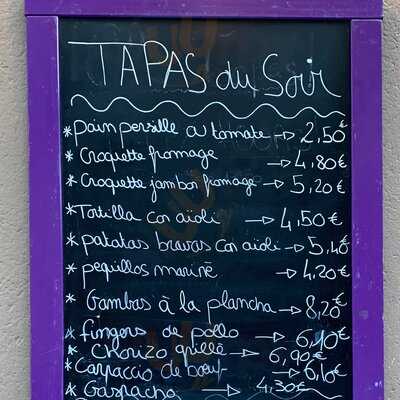 TAPAS du Soir
* pain persillé ou tomate → 2,50€
* Croquette fromage → 4,80€
* Croquette jambon fromage → 5,20€
* Tortilla con aïoli → 4,50€
* patatas bravas con aioli → 5,40€
* pequillos mariné → 4,20€
* Gambas à la plancha → 8,20€
* fingers de pollo → 6,10€
* Chorizo grillé → 6,90€
* Carpaccio de boeuf → 6,10€
* Gaspacho → 4,30€